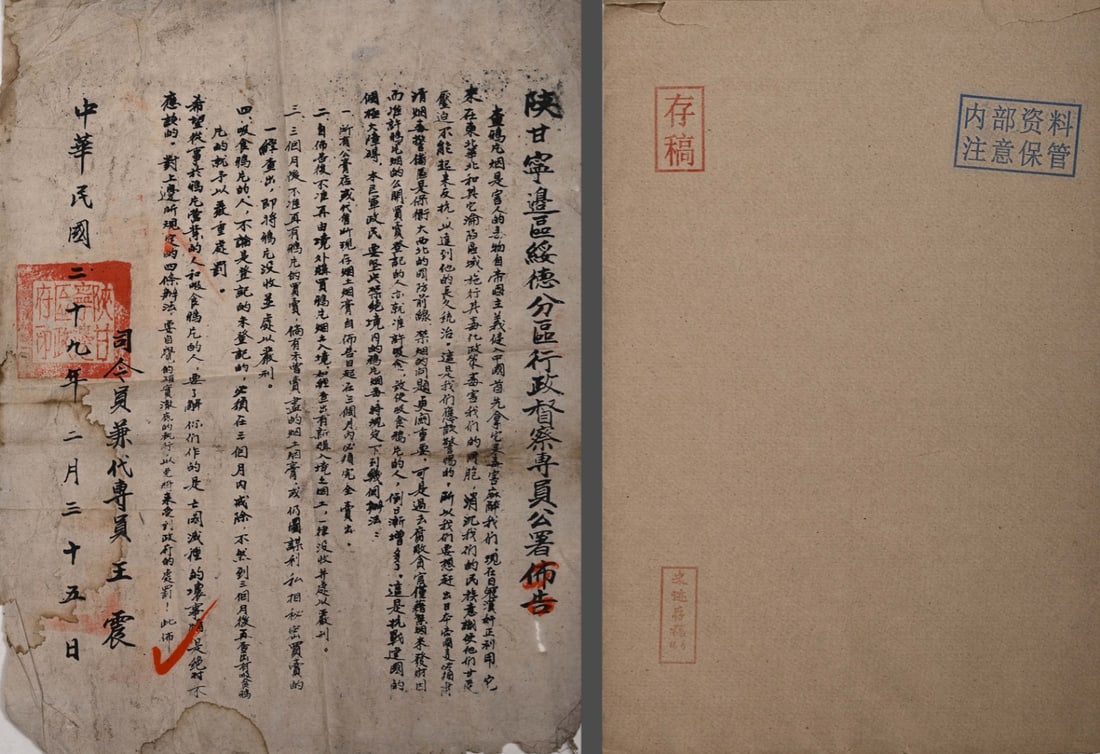 陝甘寧邊區綏德分區行政督察專員公署佈告
查鴉片烟是害人的毒物自帝國主義侵入中國首先拿它來毒害麻醉我們，現在日寇漢奸正利用它
來在東北華北和其它淪陷區域施行其毒化政策毒害我們的同胞，消沉我們的民族意識使他們甘受
壓迫不能起來反抗，以達到他的長久統治。這是我們應該警惕的，所以我們要想趕出日本帝國主義必須肅
清烟毒警備區是保衛大西北的國防前線，禁烟的問題更關重要，可是過去腐敗貪官僅藉禁烟來發財因
而准許鴉片烟的公開買賣登記的人亦就准許吸食，致使吸食鴉片的人，倒日漸增多了。這是抗戰建國的
個極大障碍，本區軍政民要堅決禁絕境內的鴉片烟毒，特規定下列幾個辦法：
一、所有公膏店或代售所現存烟土烟膏自佈告日起在三個月內必須完全賣出。
二、自佈告後不准再由境外購買鴉片烟土入境，如經查出有新購入境之烟土，一律沒收并處以嚴刑。
三、三個月後不准再有鴉片的買賣，倘有未曾賣盡的烟土烟膏或仍圖謀利私相秘密買賣的
一經查出，即將鴉片沒收並處以嚴刑。
四、吸食鴉片的人，不論是登記的未登記的，必須在三個月內戒除，不然到三個月後再查出有吸食鴉
片的就予以嚴重處罰。
希望從事於鴉片營業的人和吸食鴉片的人，要了解你們作的是亡國滅種的壞事情是絕對不
應該的。對上邊所規定的四條辦法，要自覺的確實澈底的執行以免將來受到政府的處罰！此佈
司令員兼代專員王震
中華民國二十九年二月二十五日
陝甘寧邊區政府印
存稿
内部资料
注意保管